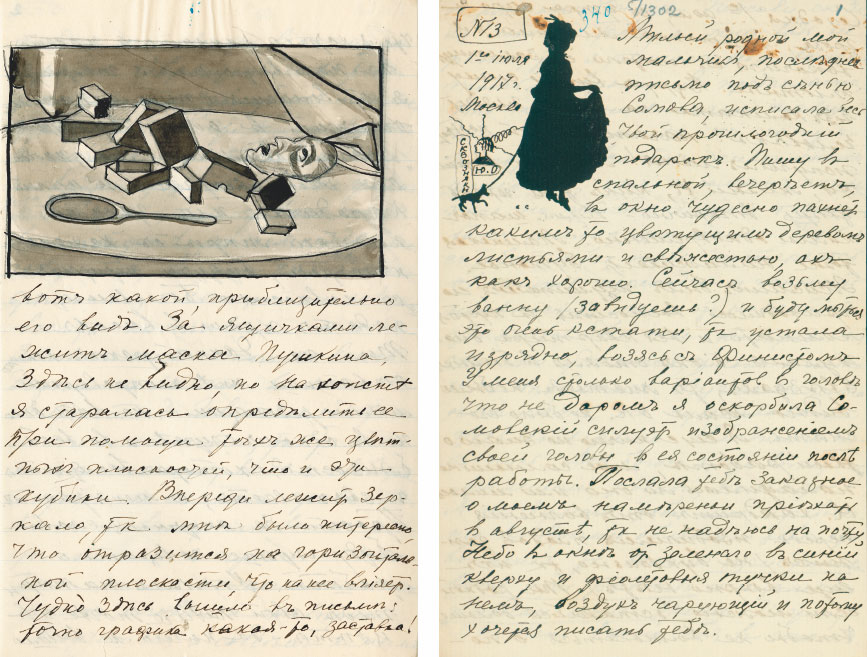 2
вотъ какой, приблизительно
его видъ. За ящичками ле-
житъ маска Пушкина.
Здѣсь не видно, но на холстѣ
я старалась опредѣлить ее
при помощи тѣхъ же цвѣт-
ныхъ плоскостей, что и эти
кубики. Впереди лежит зер-
кало, т.к. мнѣ было интересно,
что отразится на горизонталь-
ной плоскости, что на нее
Чудно здѣсь вышло въ письмѣ:
точно графика какая-то, заставка!
340 1302
1
№13
1го июля
1917 г.
Москва
СКВОЗНЯКИ
Ю.О
Милый родной мой
мальчикъ, послѣднее
письмо подъ сѣнью
Сомова, исписала весь
твой прошлогодній
подарокъ. Пишу в
спальной, вечерѣетъ,
в окно чудесно пахнетъ
какимъ то цвѣтущимъ деревомъ
листьями и свѣжестью, ахъ
какъ хорошо. Сейчасъ возьму
ванну (завидуешь?) и буду мыться
это очень кстати, т.к. устала
изрядно, возясь съ Финистомъ
У меня столько варіантов в головѣ
что не даромъ я оскорбила Со-
мовскій силуэт изображеніемъ
своей головы в ея состояніи послѣ
работы. Послала тебѣ заказное
о моемъ намѣреніи пріѣхать
в августѣ, т.к. не надѣюсь на почту
Небо в окнѣ от зеленаго въ синій
кверху и фіолетовыя тучки на
немъ, воздухъ чарующій и потому
хочется писать тебѣ.